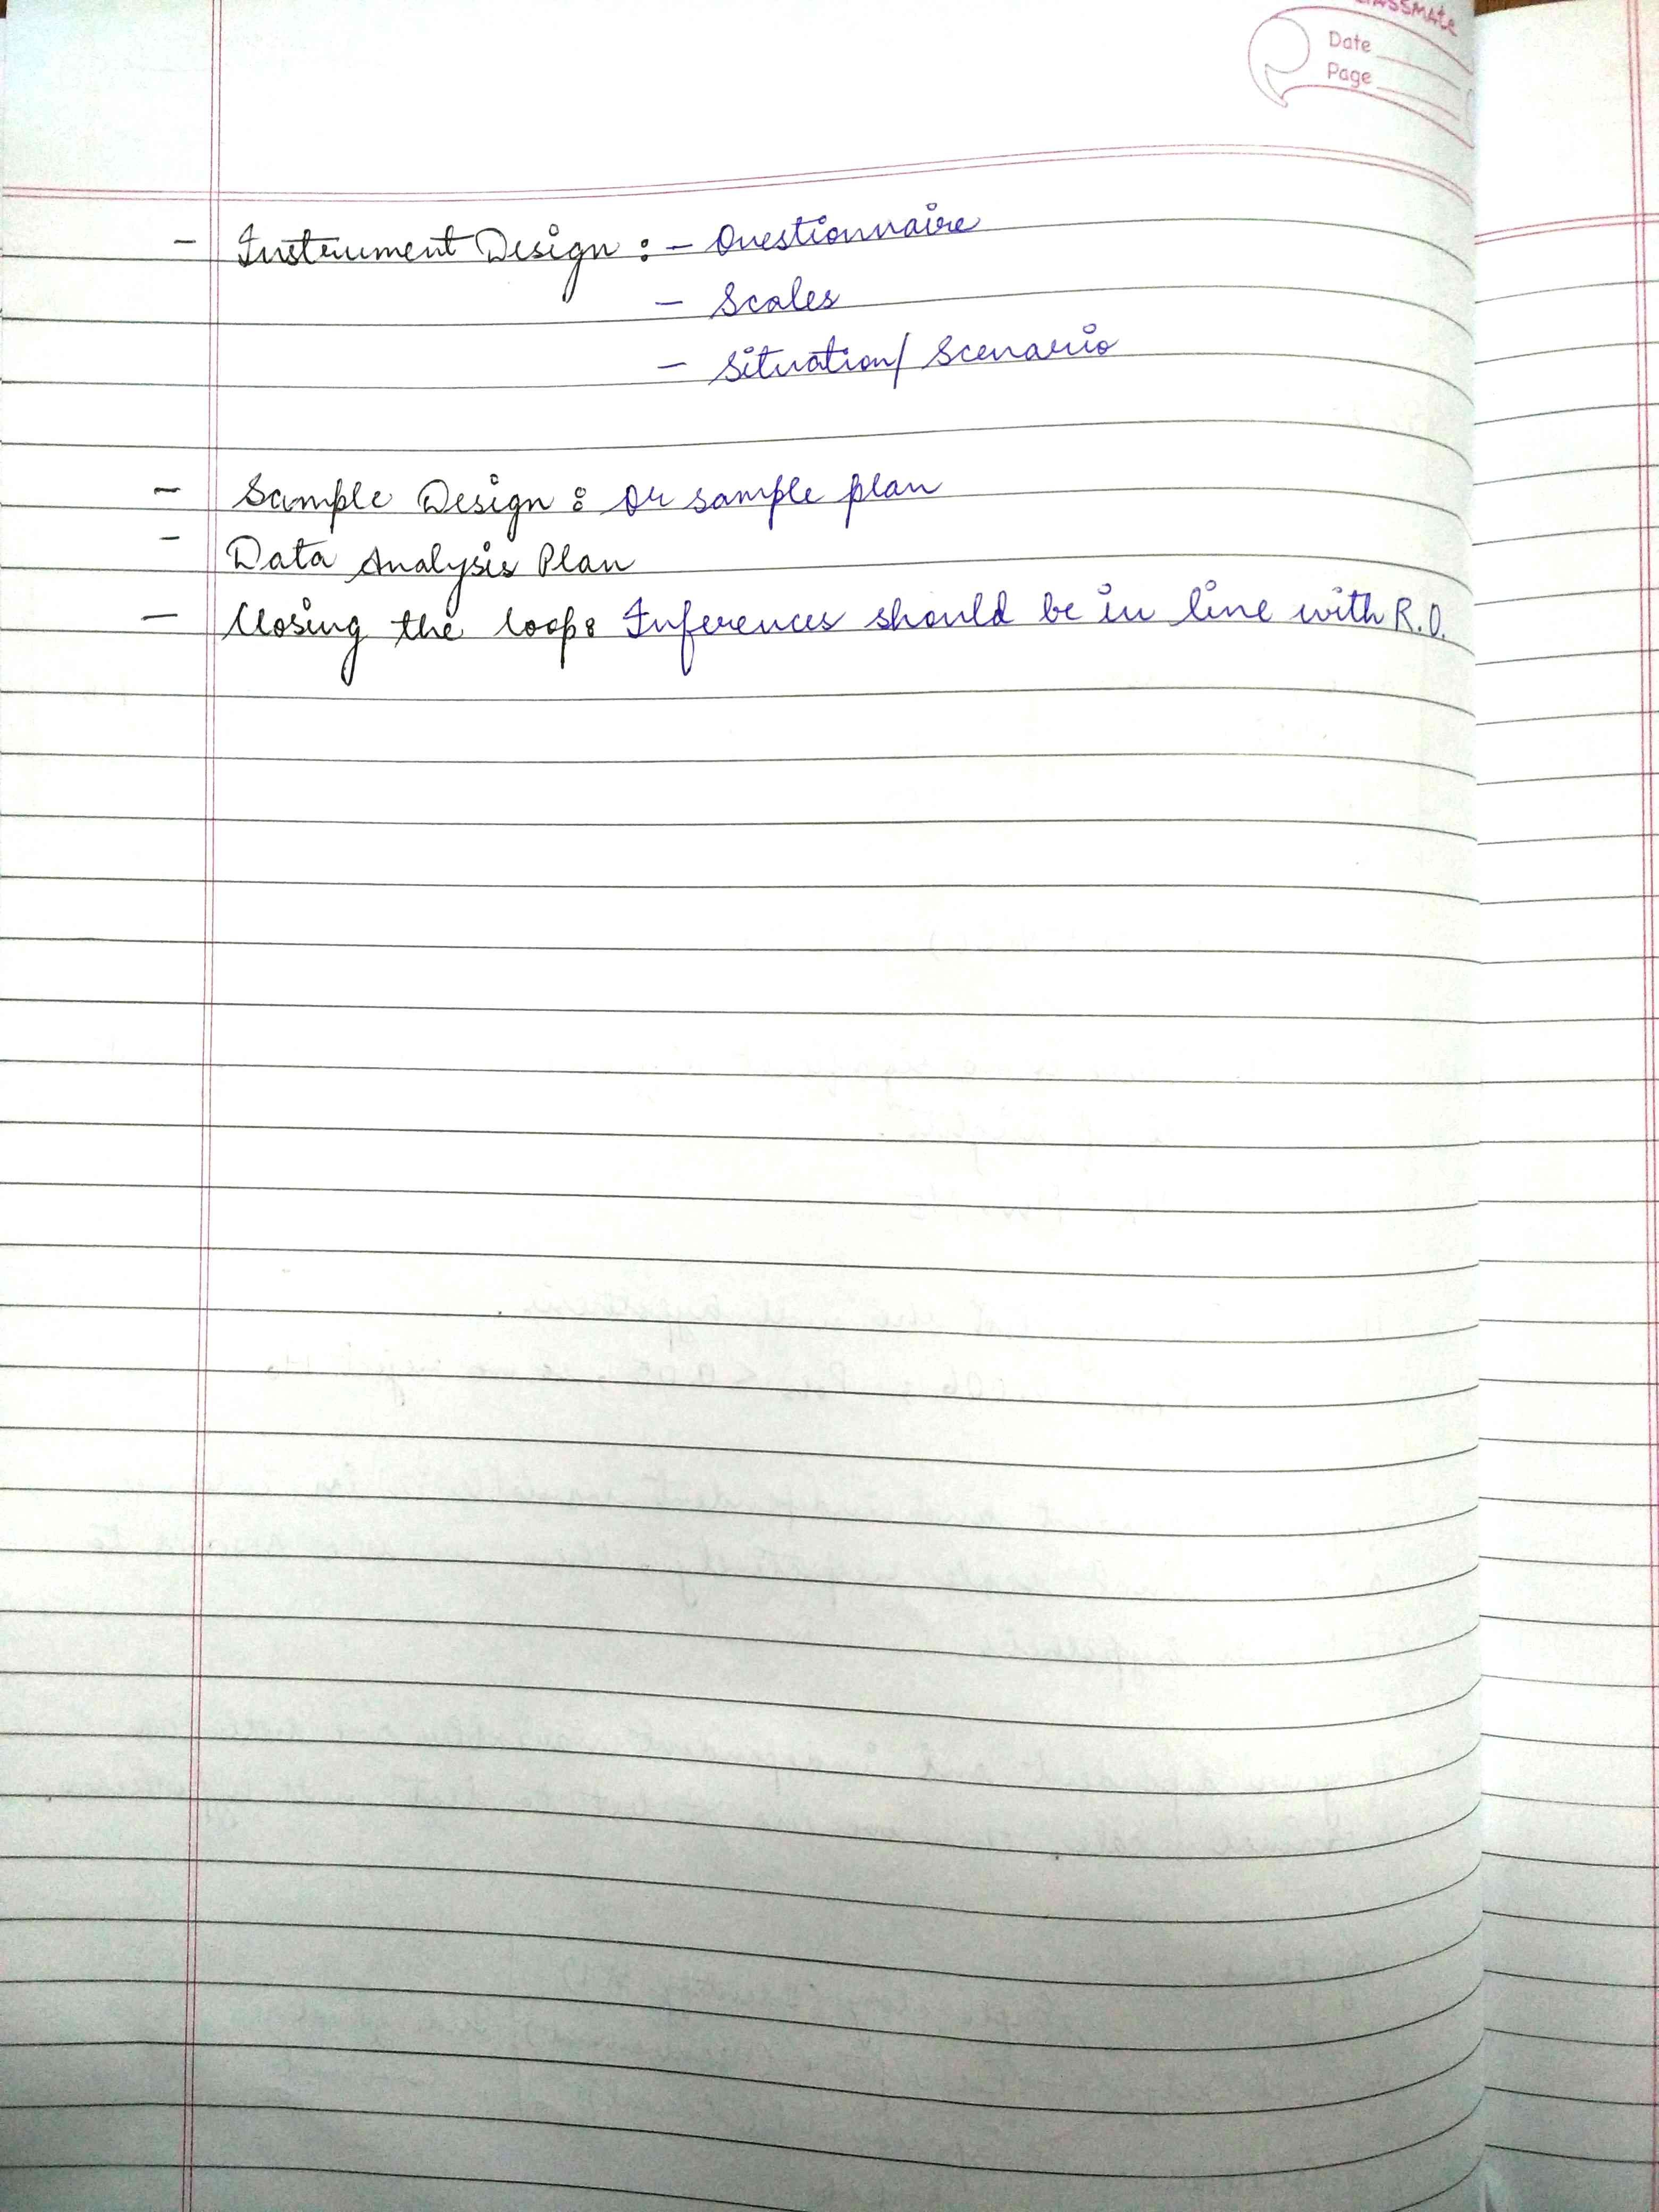 classmate
Date
Page
- Instrument Design : - Questionnaire
- Scales
- Situation/ Scenario
- Sample Design : Or sample plan
- Data Analysis Plan
- Closing the loop : Inferences should be in line with R.O.